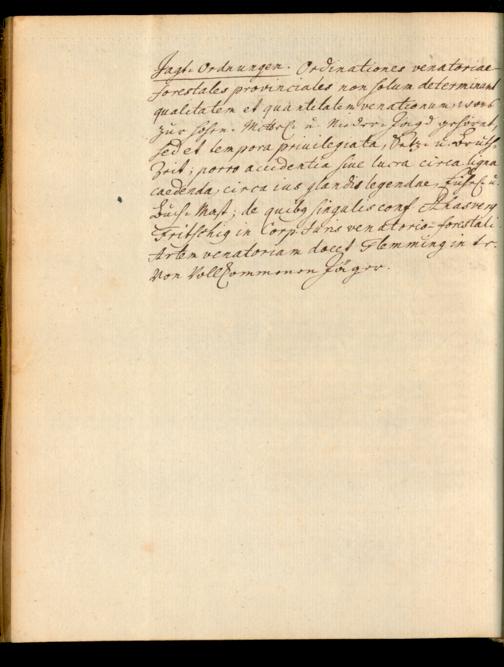 Jagt-Ordnungen. Ordinationes venatoriae-
forestales provinciales non solum determinant
qualitatem et quantitatem venationum, was
zur hohen- Mittel- u. Nieder-Jagd gehöret,
sed et tempora privilegiata, Setz- u. Bruth-
Zeit; porro accidentia sive lucra circa ligna
caedenda, circa ius glandis legendae, u.
Buch-Mast; de quibq singulis conf.
Fritschiq in Corp. Juris venatorio-forestali
Artem venatoriam docet Flemming in tr.
von Vollkommenen Jäger.